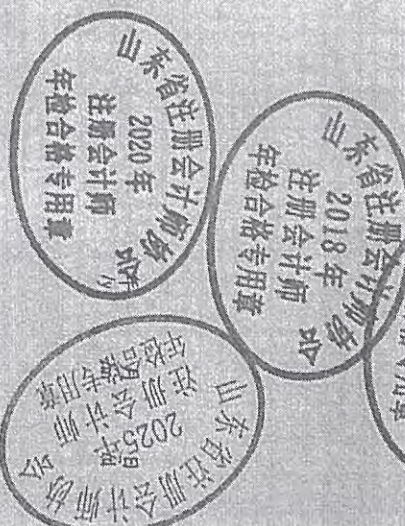 山东省注册会计师协会
2020年
注册会计师
年检合格专用章
山东省注册会计师协会
2018年
注册会计师
年检合格专用章
山东省注册会计师协会
2025年
注册会计师
年检合格专用章
专用章